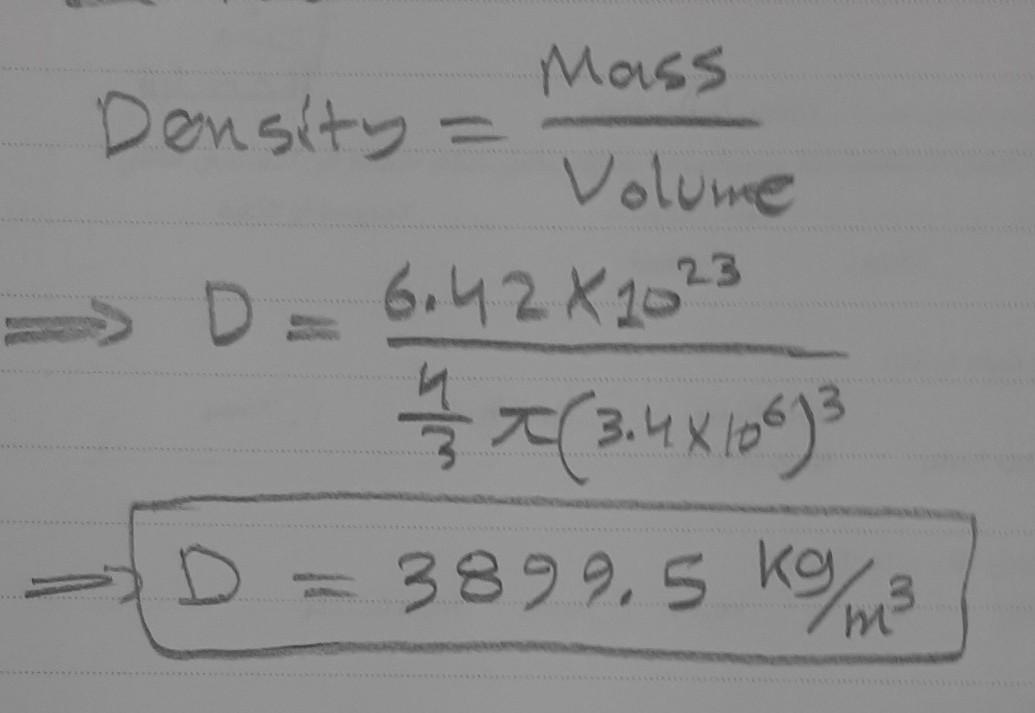 Density = Mass / Volume
⇒ D = 6.42 × 10²³ / 4/3 π(3.4 × 10⁶)³
⇒ D = 3899.5 kg/m³